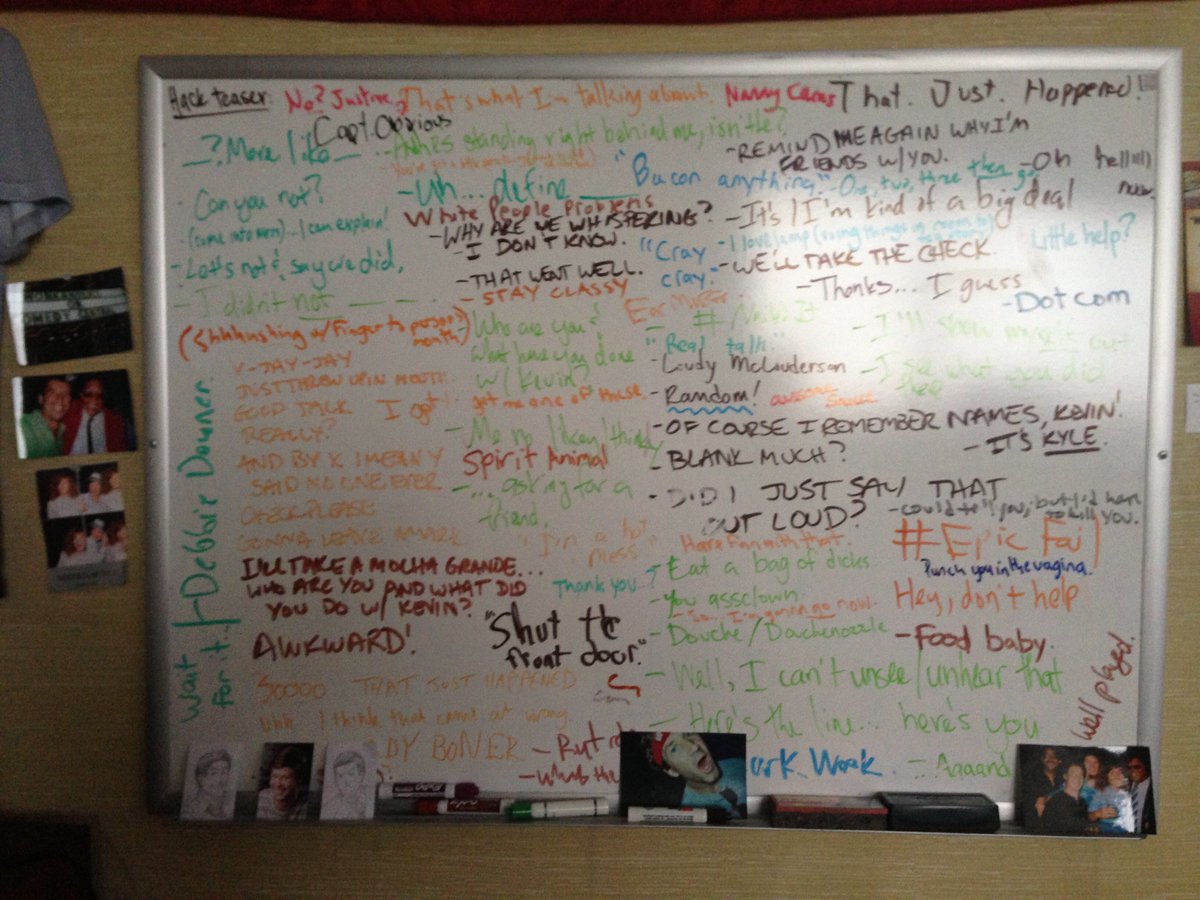 Hack teaser:
No? Just me?
That's what I'm talking about.
Nanny Cams
That. Just. Happened!
Capt. Obvious
__? More like __
- He's standing right behind me, isn't he?
- REMIND ME AGAIN WHY I'M
FRIENDS W/YOU.
- Oh hellllll
now.
- Can you not?
- Uh... define ____
"Bacon anything."
- One, two, three then go
White People Problems
- It's / I'm kind of a big deal
- (came into men)... I can explain!
- WHY ARE WE WHISPERING?
- I DON'T KNOW.
"Cray
cray."
- I love lamp
Little help?
- Let's not & say we did.
- THAT WENT WELL.
- WE'LL TAKE THE CHECK.
- STAY CLASSY
- Thanks... I guess
- Dot com
- I didn't not __ __
Ear Muffs
(Shhhhushing w/ Finger to person's
mouth)
- Who are you?
What have you done
w/ Kevin?
# Nailed It
- I'll show myself out
"Real talk."
V-JAY-JAY
- Lady McLauderson
- I see what you did
there
JUST THREW UP IN MOUTH
got me one of those
- Random!
awesome
sauce
GOOD TALK
I got
REALLY?
- Me no likey/thinky
- OF COURSE I REMEMBER NAMES, KEVIN!
- IT'S KYLE.
AND BY X I MEAN Y
Spirit Animal
- BLANK MUCH?
SAID NO ONE EVER
- ... asking for a
friend.
- DID I JUST SAY THAT
OUT LOUD?
CHECK PLEASE
- could tell you, but I'd have
to kill you.
GONNA LEAVE A MARK
"I'm a hot
mess"
Have Fun with that.
#Epic Fail
I'LL TAKE A MOCHA GRANDE...
WHO ARE YOU AND WHAT DID
YOU DO W/ KEVIN?
Thank you?
- Eat a bag of dicks
Punch you in the vagina.
- You assclown.
- So.. I'm gonna go now.
Hey, don't help
AWKWARD!
"Shut the
front door."
- Douche/Douchenozzle
- Food baby.
Wait
for it..
Debbie Downer.
SOOOO THAT JUST HAPPENED
- Well, I can't unsee/unhear that
Well played.
Uhh I think that came out wrong
- Here's the line... here's you
DY BONER
- Rut ro
- What the
Work.
- Aaaand